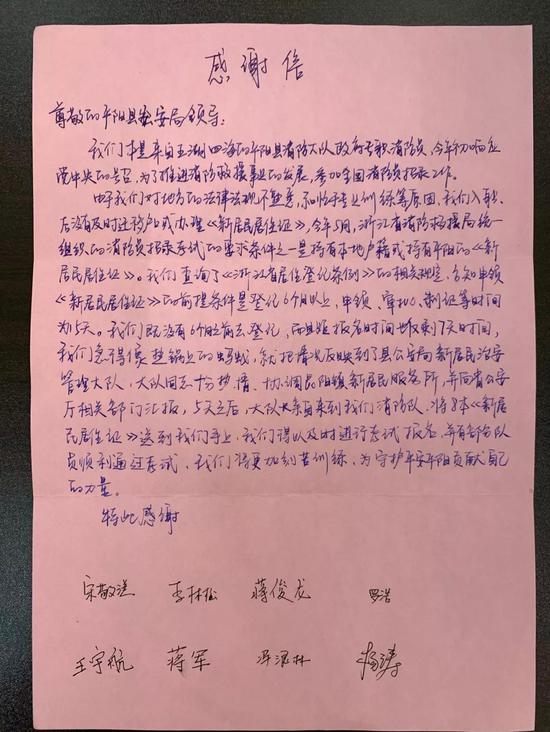 感谢信
尊敬的平阳县公安局领导：
我们本是来自五湖四海的平阳县消防大队政府专职消防员，今年初响应
党中央的号召，为了推进消防救援事业的发展，参加全国消防员招录工作。
由于我们对地方的法律法规不熟悉，和忙于专业训练等原因，我们入职
后没有及时迁移户口或办理《新居民居住证》，今年5月，浙江省消防救援局统一
组织的消防员招录考试的要求条件之一是持有本地户籍或持有平阳的《新
居民居住证》。我们查询了《浙江省居住登记条例》的相关规定，告知申领
《新居民居住证》的前提条件是登记6个月以上，申领、审批、制证等时间
为15天。我们既没有6个月之前去登记，而且距报名时间也仅剩7天时间，
我们急得像热锅上的蚂蚁，就把情况反映到了县公安局新居民治安
管理大队，大队同志十分热情，协调昆阳镇新居民服务所，并向省公安
厅相关部门汇报，5天之后，大队长亲自来到我们消防队，将8本《新居
民居住证》送到我们手上，我们得以及时进行考试报名，并有部分队
员顺利通过考试，我们将更加刻苦训练，为守护平安平阳贡献自己
的力量。
特此感谢
宋敬送 李林松 蒋俊龙 罗浩
王宇航 蒋军 林 杨涛